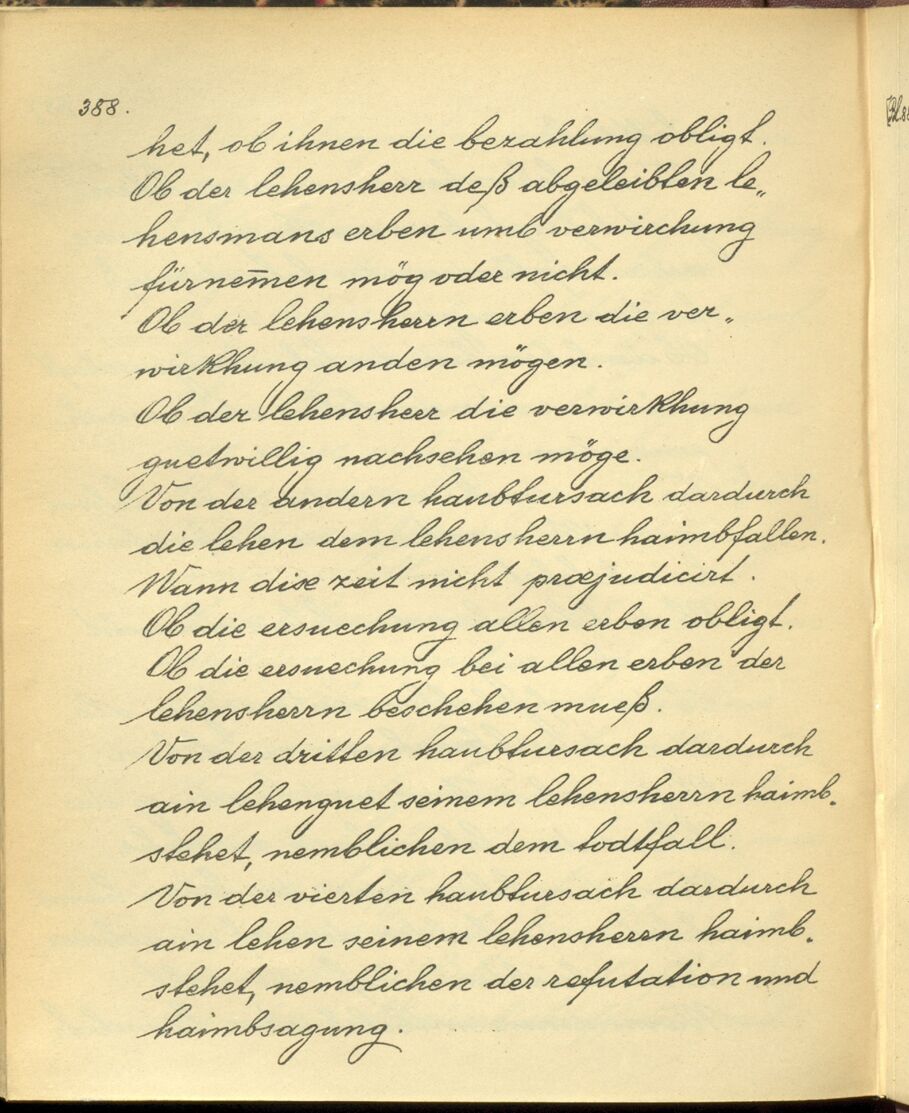 388.
het, ob ihnen die bezahlung obligt.
Ob der lehensherr deß abgeleibten le„
hensmans erben umb verwirchung
fürnem̄en mög oder nicht.
Ob der lehensherrn erben die ver„
wirkhung anden mögen.
Ob der lehensherr die verwirkhung
guetwillig nachsehen möge.
Von der andern haubtursach dardurch
die lehen dem lehensherrn haimbfallen.
Wann dise zeit nicht præjudicirt.
Ob die ersuechung allen erben obligt.
Ob die ersuechung bei allen erben der
lehensherrn beschehen mueß.
Von der dritten haubtursach dardurch
ain lehenguet seinem lehensherrn haimb„
stehet, nemblichen dem todtfall.
Von der vierten haubtursach dardurch
ain lehen seinem lehensherrn haimb„
stehet, nemblichen der refutation und
haimbsagung.